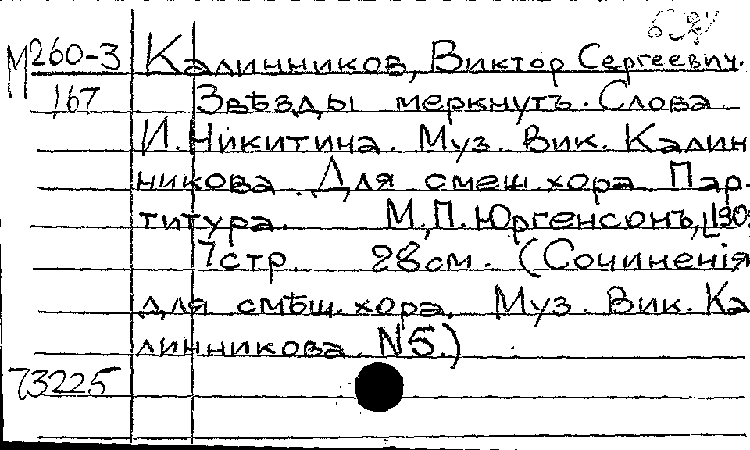 М 260-3 Калинников, Виктор Сергеевич.
167 Звѣзды меркнутъ. Слова
И. Никитина. Муз. Вик. Калин
никова. Для смеш. хора. Пар.
титура. М., П. Юргенсонъ,
7 стр. 28 см. (Сочиненія
для смѣш. хора. Муз. Вик. Ка
линникова. N5.)
73225